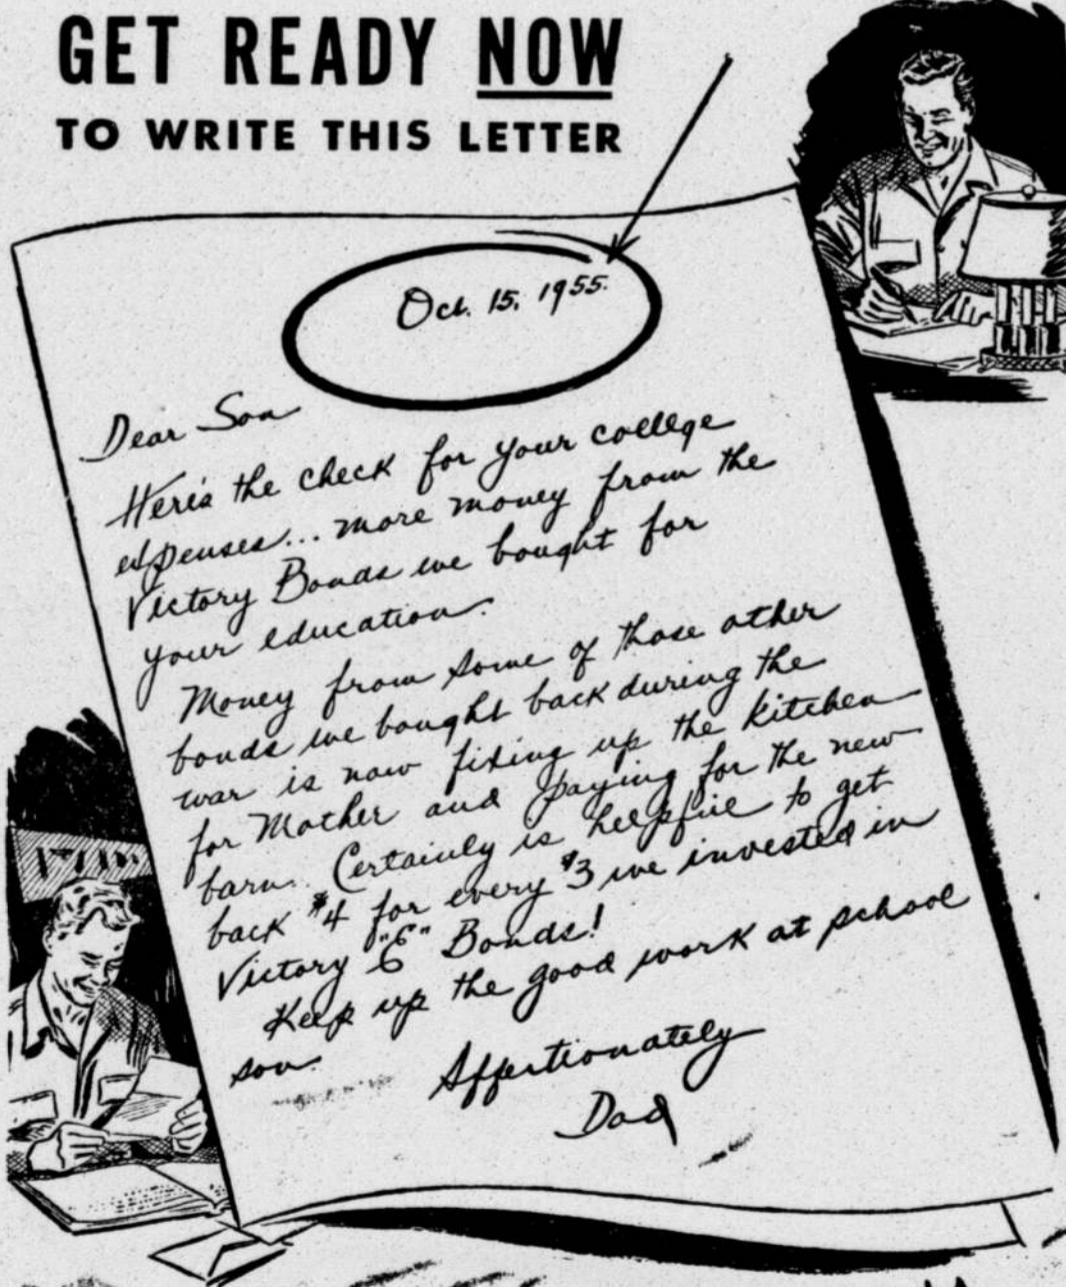 GET READY NOW
TO WRITE THIS LETTER
Oct. 15, 1955.
Dear Son
Here's the check for your college
expenses... more money from the
Victory Bonds we bought for
your education.
Money from some of those other
bonds we bought back during the
war is now fixing up the kitchen
for Mother and paying for the new
barn. Certainly is helpful to get
back $4 for every $3 we invested in
Victory "E" Bonds!
Keep up the good work at school
son.
Affectionately
Dad